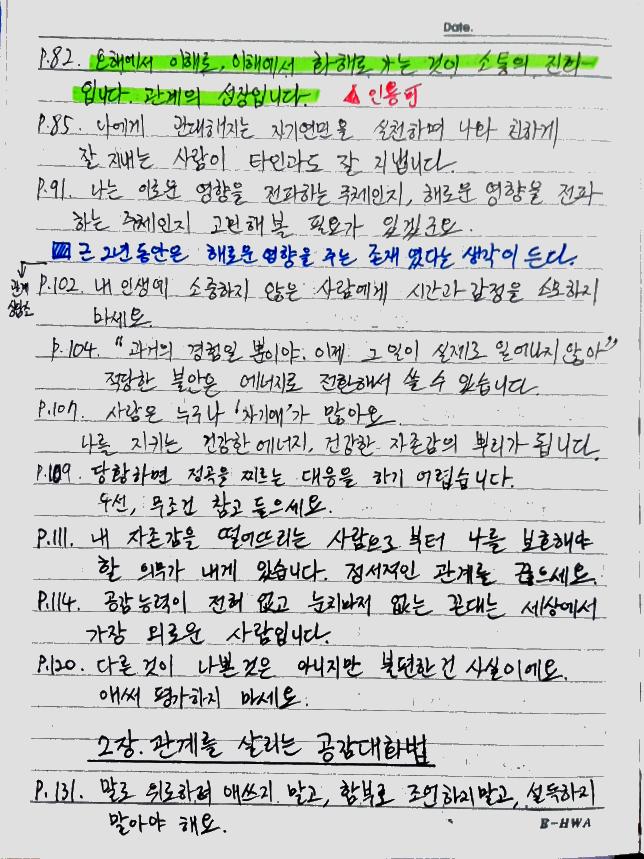 Date.
P.82. 오해에서 이해로, 이해에서 화해로 가는 것이 소통의 진화
입니다. 관계의 성장입니다. ▲ 인용可
P.85. 나에게 관대해지는 자기연민을 실천하며 나와 친하게
잘 지내는 사람이 타인과도 잘 지냅니다.
P.91. 나는 이로운 영향을 전파하는 주체인지, 해로운 영향을 전파
하는 주체인지 고민해볼 필요가 있겠군요.
근 2년동안은 해로운영향을 주는 존재였다는 생각이 든다.
관계
상담소
P.102. 내 인생에 소중하지 않은 사람에게 시간과 감정을 소모하지
마세요.
P.104. "과거의 경험일 뿐이야. 이제 그 일이 실제로 일어나지 않아"
적당한 불안은 에너지로 전환해서 쓸 수 있습니다.
P.107. 사람은 누구나 '자기애'가 많아요.
나를 지키는 건강한 에너지, 건강한 자존감의 뿌리가 됩니다.
P.109. 당황하면 정곡을 찌르는 대응을 하기 어렵습니다.
우선, 무조건 참고 들으세요.
P.111. 내 자존감을 떨어뜨리는 사람으로 부터 나를 보호해야
할 의무가 내게 있습니다. 정서적인 관계를 끊으세요.
P.114. 공감능력이 전혀 없고 눈치마저 없는 꼰대는 세상에서
가장 외로운 사람입니다.
P.120. 다른것이 나쁜것은 아니지만 불편한건 사실이에요.
애써 평가하지 마세요.
2장. 관계를 살리는 공감대화법
P.131. 말로 위로하려 애쓰지 말고, 함부로 조언하지말고, 설득하지
말아야 해요.
B-HWA